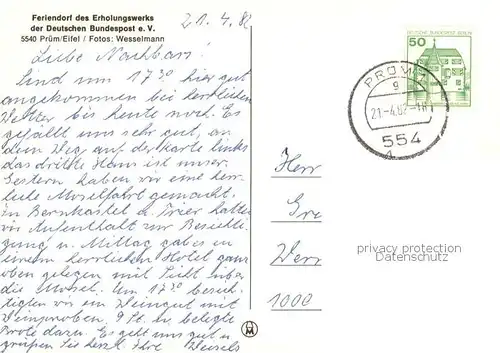 Feriendorf des Erholungswerks
der Deutschen Bundespost e. V.
5540 Prüm/Eifel / Fotos: Wesselmann
21. 4. 82
Liebe Nachbarn!
Sind um 17³⁰ hier gut
angekommen bei herrlichem
Wetter bis heute noch. Es
gefällt uns sehr gut, an
dem Weg auf der Karte links
das dritte Haus ist unser.
Gestern haben wir eine herr-
liche Moselfahrt gemacht.
in Bernkastel u. Trier hatten
wir Aufenthalt zur Besichti-
gung u. Mittag gab es in
einem herrlichen Hotel ganz
oben gelegen mit Sicht über
die Mosel. Um 17³⁰ besich-
tigten wir ein Weingut mit
Weinproben. 9 St. u. belegte
Brote dazu. Es geht uns gut u
grüßen Sie herzl. Ihre
DEUTSCHE BUNDESPOST BERLIN
50
PRÜM
g
21.-4.82.-18
554
Herr
Gre
Wer
1000
privacy protection
Datenschutz